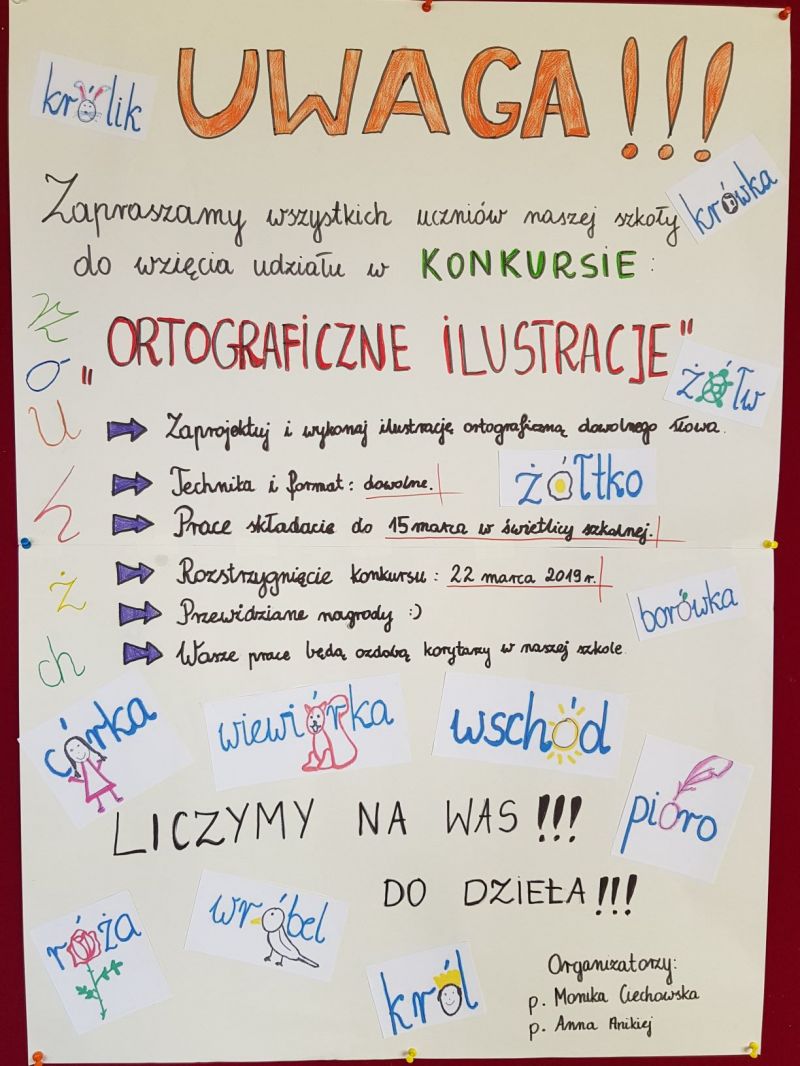 królik
UWAGA!!!
krówka
Zapraszamy wszystkich uczniów naszej szkoły
do wzięcia udziału w KONKURSIE:
„ORTOGRAFICZNE ILUSTRACJE"
żółw
rz
ó
u
h
ż
ch
Zaprojektuj i wykonaj ilustrację ortograficzną dowolnego słowa.
Technika i format: dowolne.
żółtko
Prace składacie do 15 marca w świetlicy szkolnej.
Rozstrzygnięcie konkursu: 22 marca 2019 r.
borówka
Przewidziane nagrody :)
Wasze prace będą ozdobą korytarzy w naszej szkole.
córka
wiewiórka
wschód
pióro
LICZYMY NA WAS!!!
DO DZIEŁA!!!
róża
wróbel
król
Organizatorzy:
p. Monika Ciechowska
p. Anna Anikiej